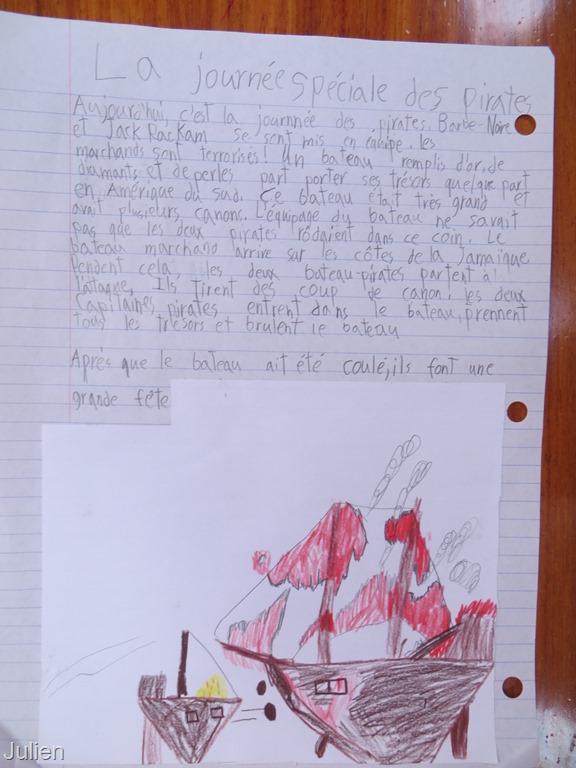 La journée spéciale des Pirates
Aujourd'hui, c'est la journnée des pirates. Barbe-Noire
et Jack Rackam se sont mis en équipe. les
marchands sont terrorisés! Un bateau remplis d'or, de
diamants et de perles part porter ses trésors quelque part
en Amérique du sud. Ce bateau était très grand et
avait plusieurs canons. L'équipage du bateau ne savait
pas que les deux pirates rodaient dans ce coin. Le
bateau marchand arrire sur les côtes de la Jamaïque.
Pendent cela, les deux bateau-pirates partent à
l'ataque. Ils tirent des coup de canon! les deux
Capitaines pirates entrent dans le bateau, prennent
tous les trésors et brulent le bateau
Après que le bateau ait été coulé, ils font une
grande fête
Julien